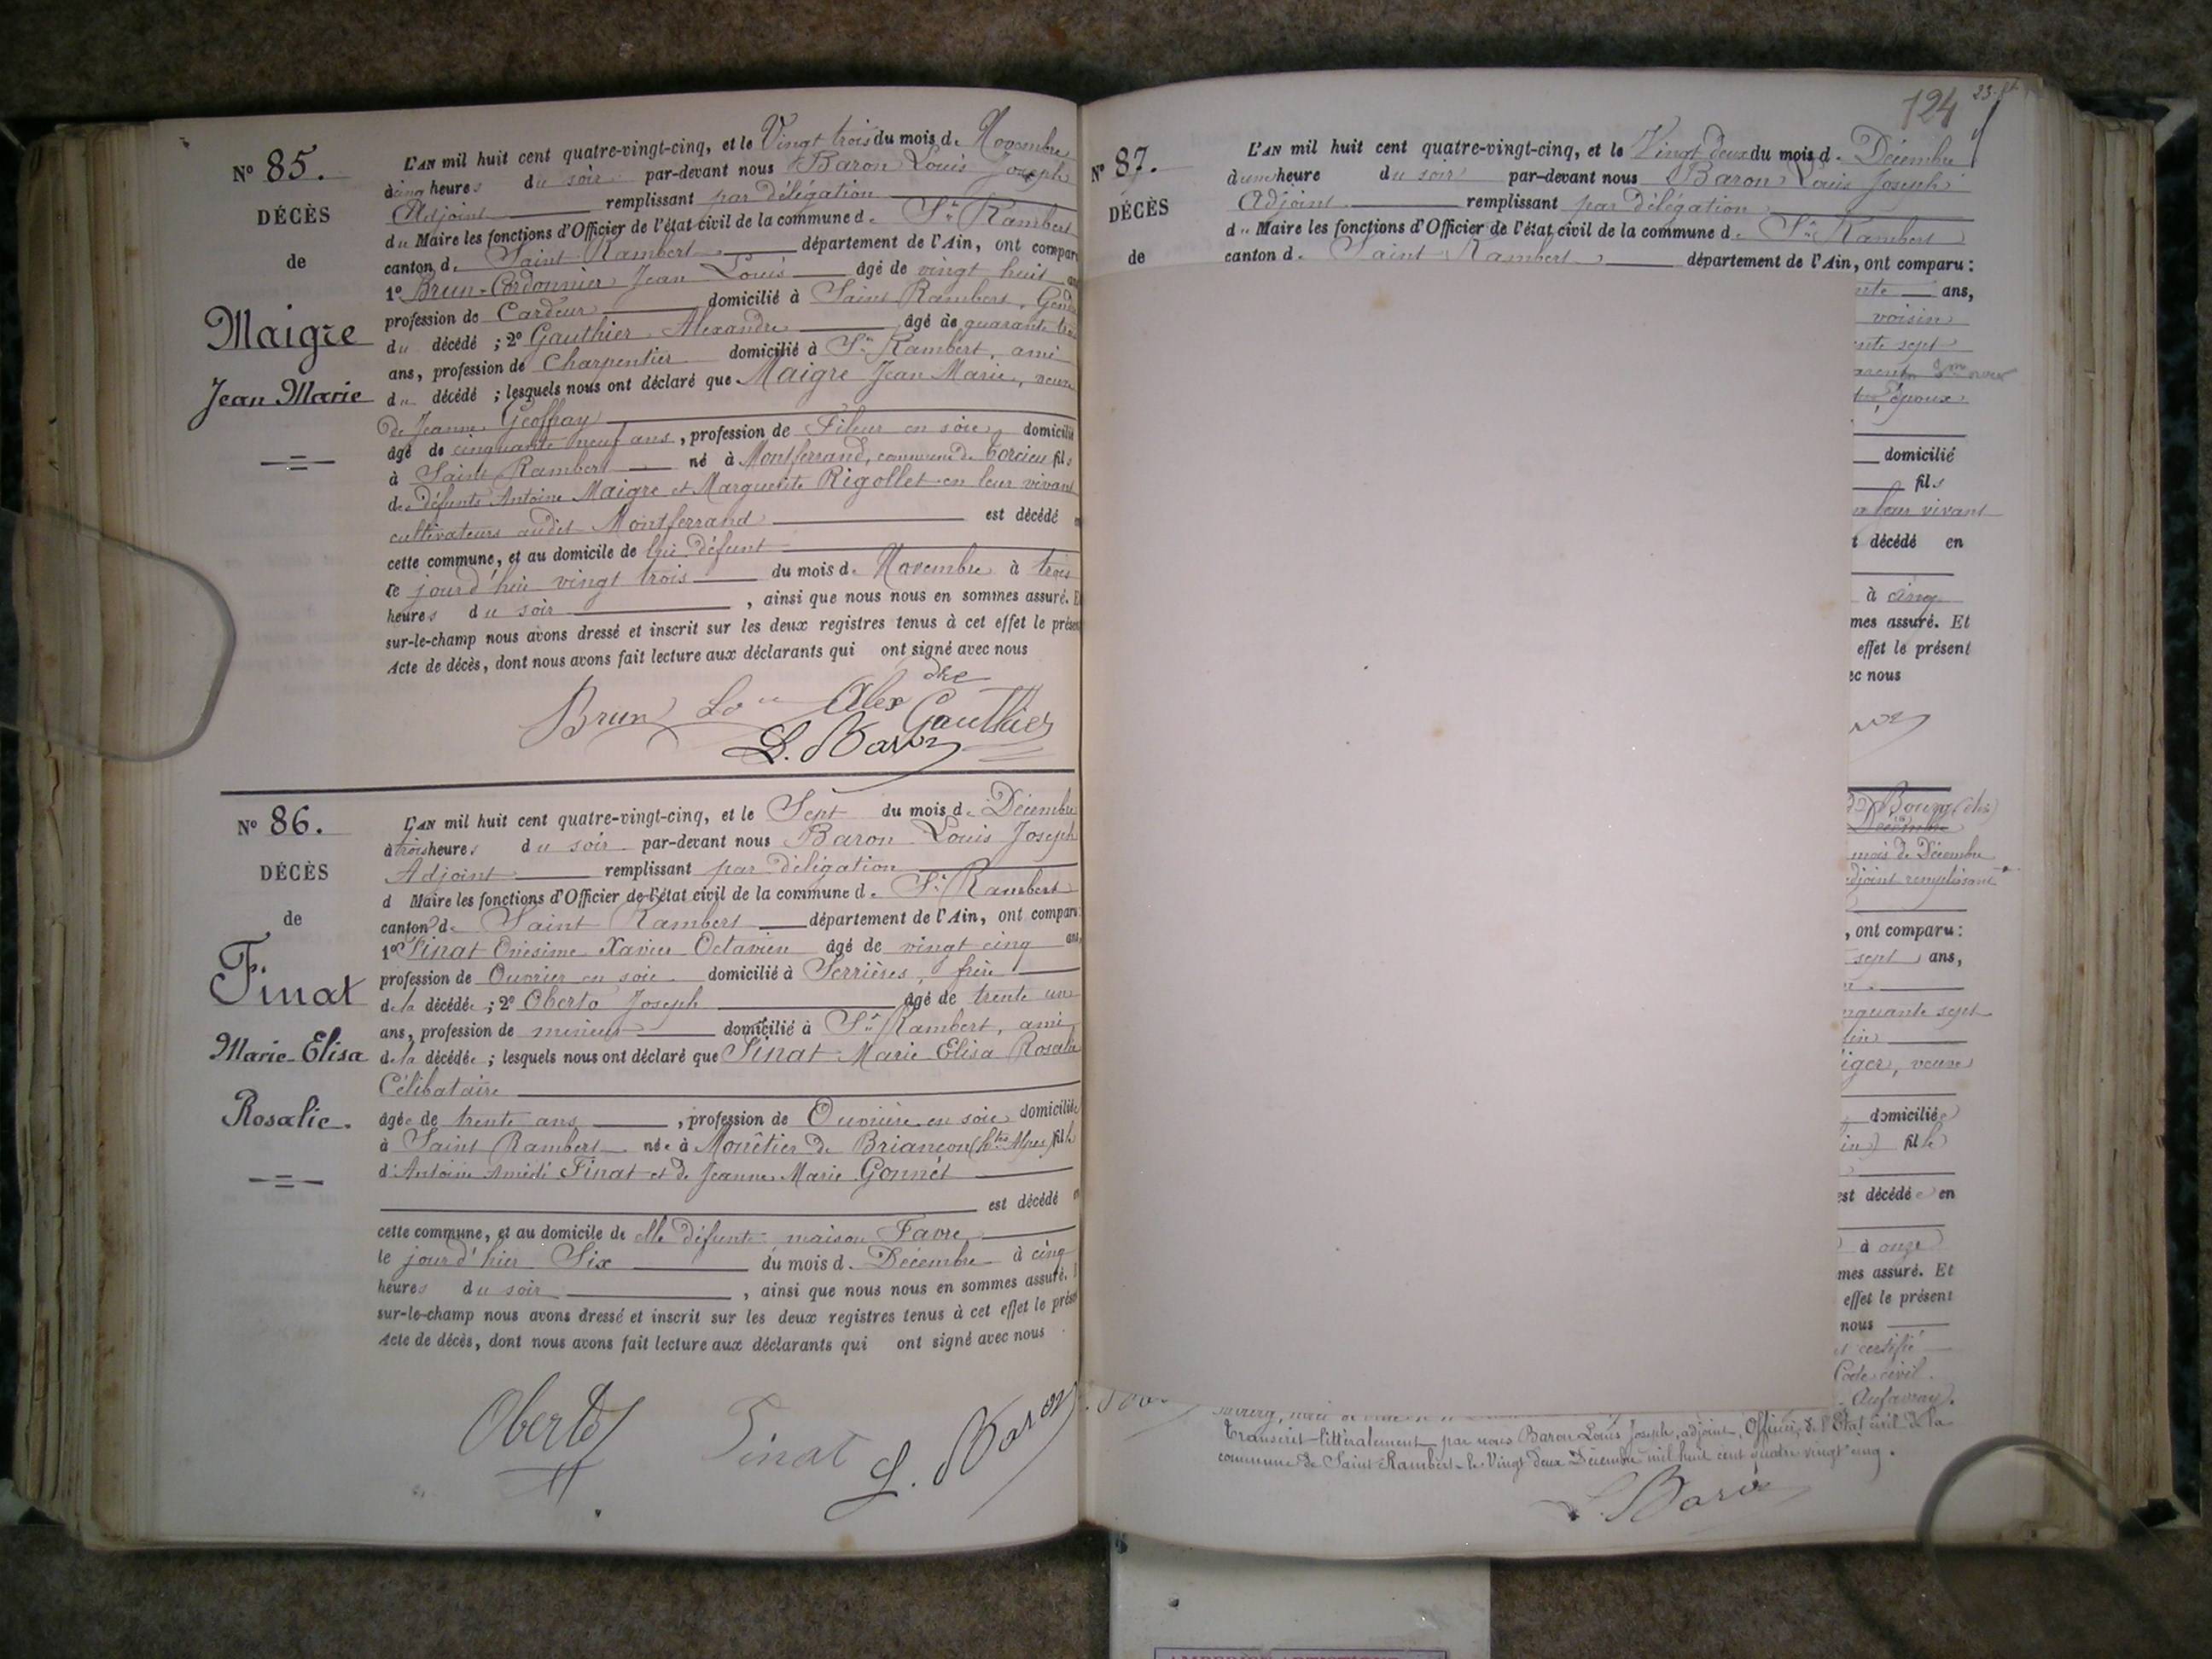 N° 85.
DÉCÈS
de
Maigre
Jean Marie
L'AN mil huit cent quatre-vingt-cinq, et le Vingt trois du mois de Novembre
à cinq heures du soir par-devant nous Baron Louis Joseph
Adjoint remplissant par délégation
du Maire les fonctions d'Officier de l'état civil de la commune de St Rambert
canton de Saint Rambert département de l'Ain, ont compar
1° Brun-Cordonnier Jean Louis âgé de vingt huit an
profession de Cardeur domicilié à Saint Rambert, Gend
du décédé ; 2° Gauthier Alexandre âgé de quarante tro
ans, profession de Charpentier domicilié à St Rambert, ami
du décédé ; lesquels nous ont déclaré que Maigre Jean Marie, veuve
de Jeanne Geoffray
âgé de cinquante neuf ans, profession de Fileur en soie domicilié
à Saint Rambert né à Montferrand, commune de Torcieu fils
de défunts Antoine Maigre et Marguerite Rigollet en leur vivant
cultivateurs audit Montferrand est décédé en
cette commune, et au domicile de lui défunt
le jourd'hui vingt trois du mois de Novembre à trois
heures du soir, ainsi que nous nous en sommes assuré. E
sur-le-champ nous avons dressé et inscrit sur les deux registres tenus à cet effet le présen
Acte de décès, dont nous avons fait lecture aux déclarants qui ont signé avec nous
Brun Alexdre Gauthier
L. Baron
N° 86.
DÉCÈS
de
Finat
Marie-Elisa
Rosalie.
L'AN mil huit cent quatre-vingt-cinq, et le Sept du mois de Décembre
à trois heures du soir par-devant nous Baron Louis Joseph
Adjoint remplissant par délégation
d Maire les fonctions d'Officier de l'état civil de la commune de St Rambert
canton de Saint Rambert département de l'Ain, ont comparu:
1° Finat Onésime Xavier Octavien âgé de vingt cinq ans,
profession de Ouvrier en soie domicilié à Serrières, frère
de la décédée ; 2° Oberto Joseph âgé de trente un
ans, profession de mineur domicilié à St Rambert, ami
de la décédée ; lesquels nous ont déclaré que Finat Marie Elisa Rosalie
Célibataire
âgée de trente ans, profession de Ouvrière en soie domiciliée
à Saint Rambert née à Monêtier de Briançon (htes Alpes) fille
d'Antoine Amédé Finat et de Jeanne Marie Gonnet
est décédé en
cette commune, et au domicile de elle défunte maison Favre
le jour d'hier Six du mois de Décembre à cinq
heures du soir, ainsi que nous nous en sommes assuré. E
sur-le-champ nous avons dressé et inscrit sur les deux registres tenus à cet effet le présen
Acte de décès, dont nous avons fait lecture aux déclarants qui ont signé avec nous
Oberto Finat L. Baron
124
N° 87.
DÉCÈS
de
L'AN mil huit cent quatre-vingt-cinq, et le Vingt deux du mois de Décembre
à une heure du soir par-devant nous Baron Louis Joseph
Adjoint remplissant par délégation
du Maire les fonctions d'Officier de l'état civil de la commune de St Rambert
canton de Saint Rambert département de l'Ain, ont comparu:
nte ans,
voisin
nte sept
époux
domicilié
fils
leur vivant
t décédé en
à cinq
mes assuré. Et
effet le présent
ec nous
Bourg (Ain)
Décembre
mois de Décembre
djoint remplissant
, ont comparu:
sept ans,
nquante sept
iger, veuve
domiciliée
in) fille
est décédée en
à onze
mes assuré. Et
effet le présent
nous
certifié
Code civil.
Transcrit littéralement par nous Baron Louis Joseph, adjoint, Officier de l'Etat civil de la
commune de Saint Rambert le Vingt deux Décembre mil huit cent quatre vingt cinq.
L. Baron